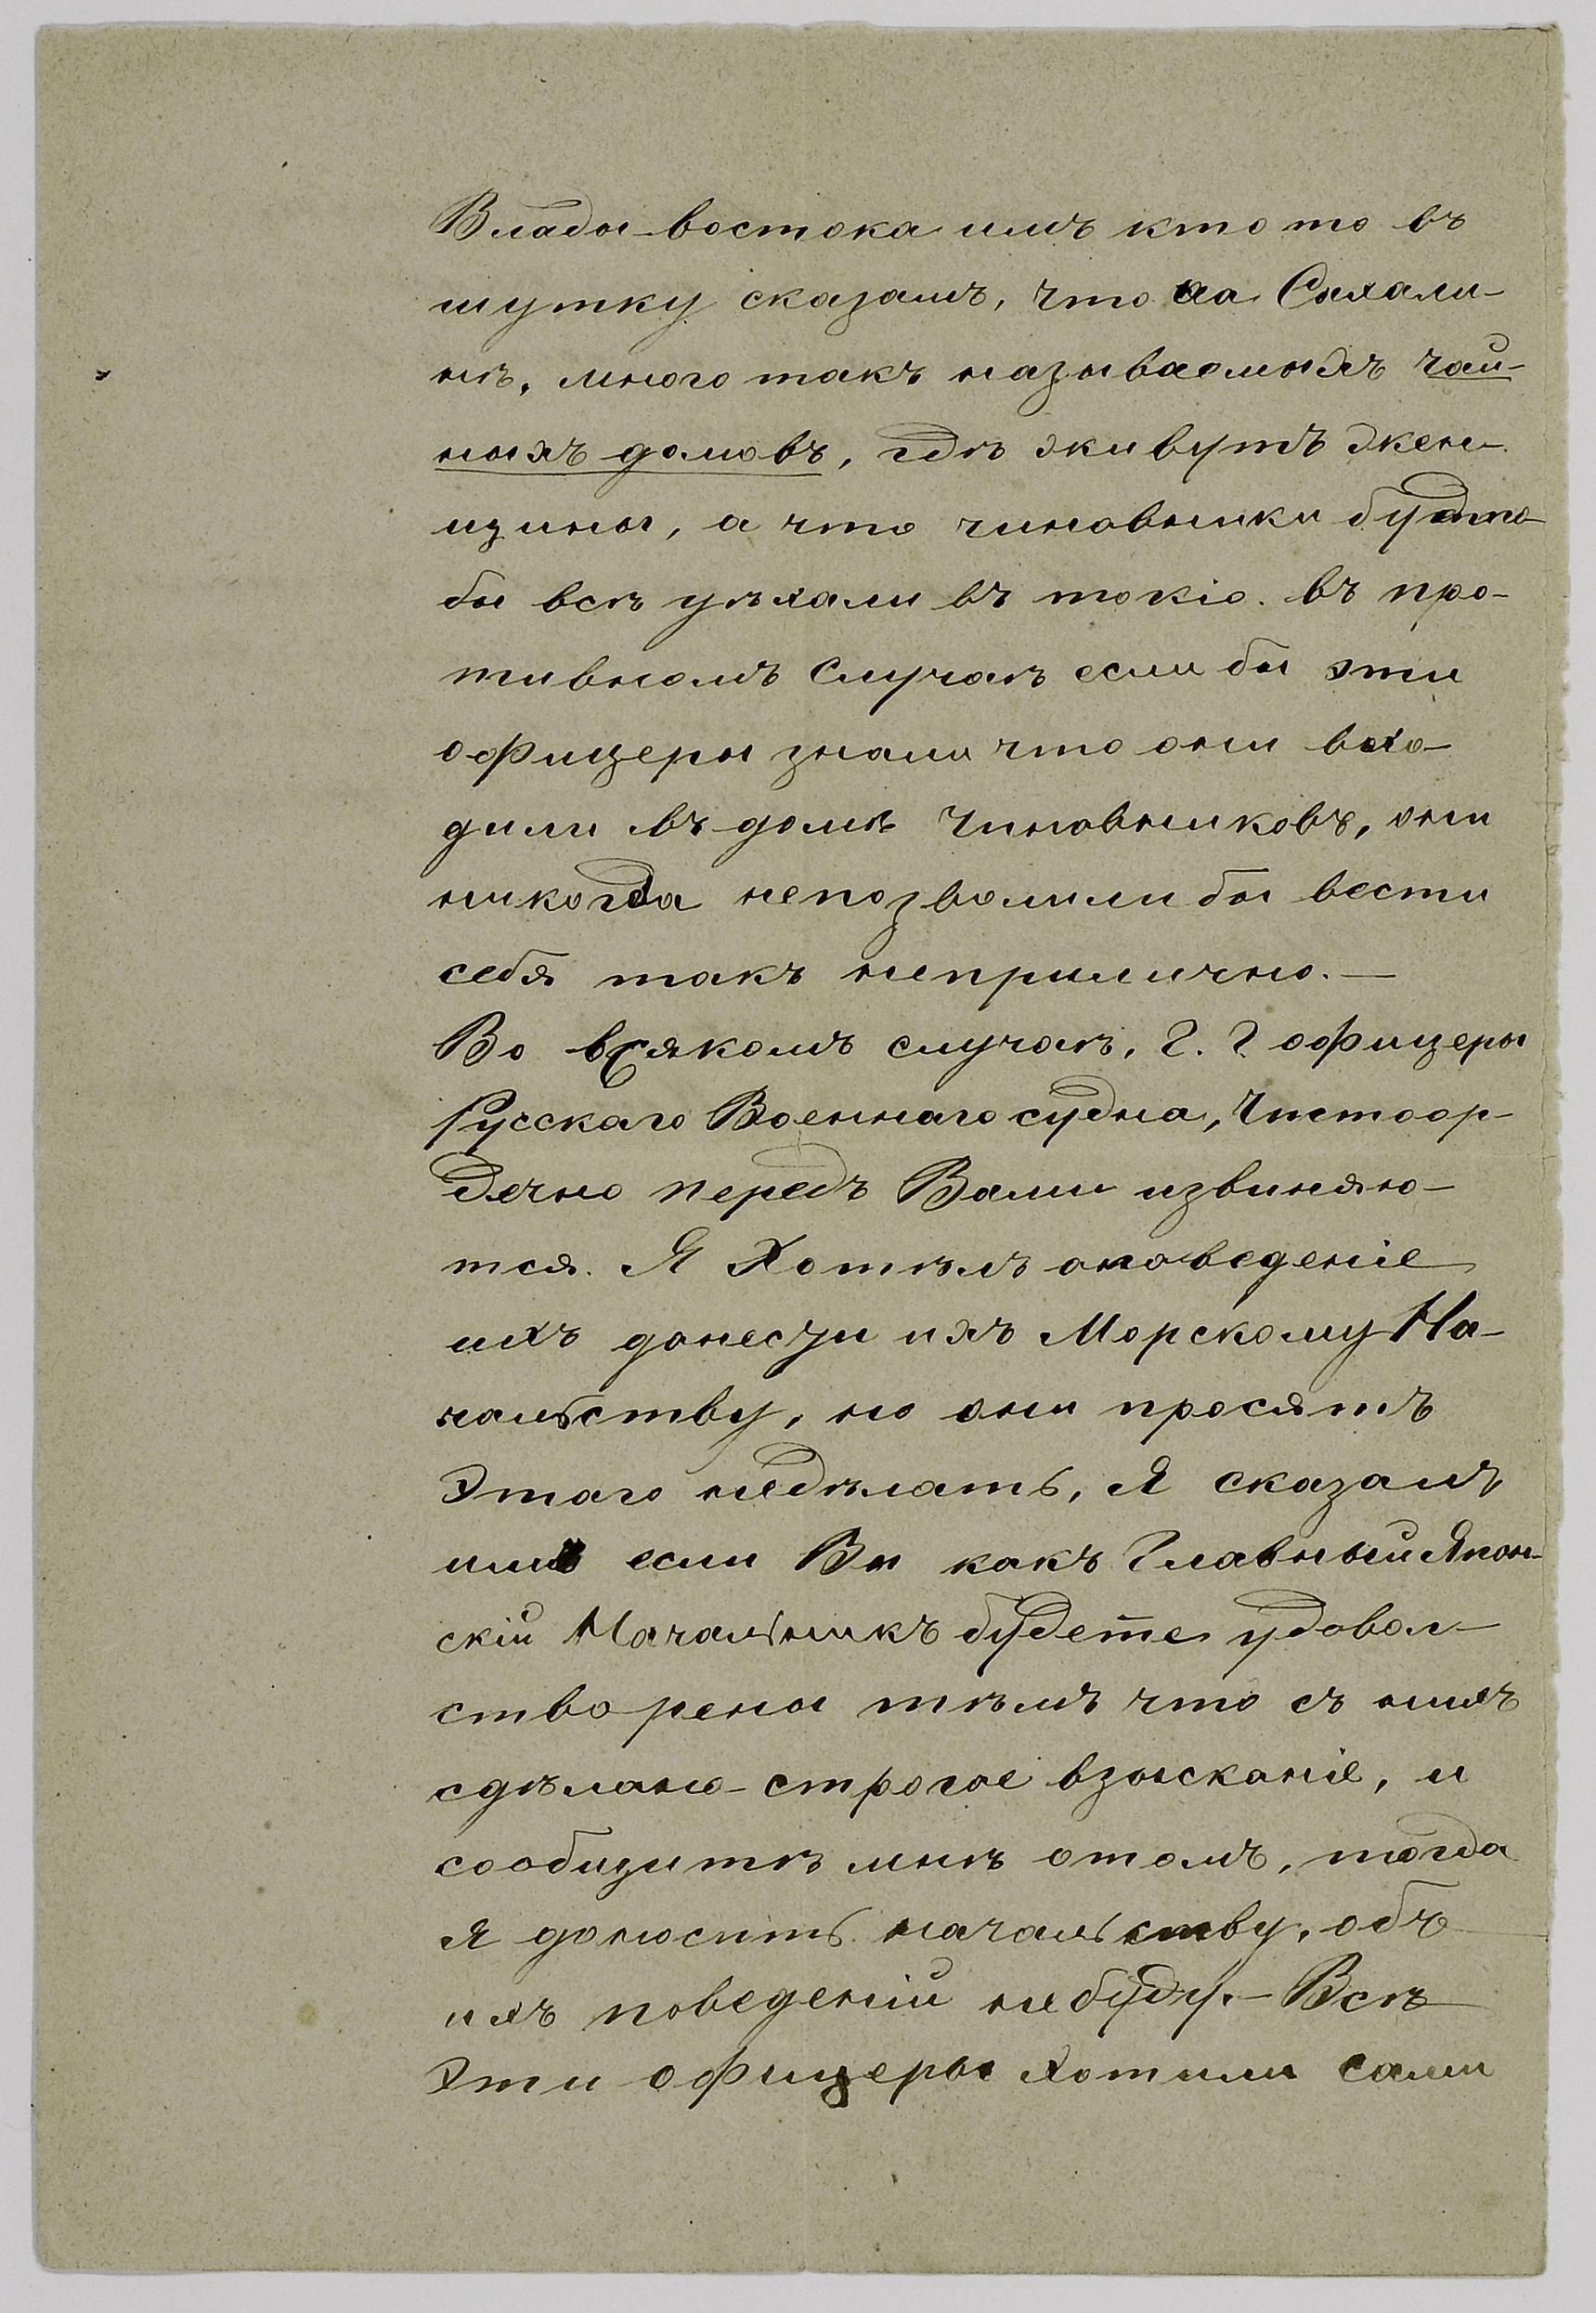 Влады-востока имъ кто то въ
шутку сказалъ, что на Сахали-
нѣ, много такъ называемыхъ чай-
ныхъ домовъ, гдѣ живутъ жен-
щины, а что чиновники будто-
бы всѣ уѣхали въ токіо. въ про-
тивномъ Случаѣ если бы эти
офицеры знали что они вхо-
дили въ домѣ Чиновниковъ, они
никогда непозволили бы вести
себя такъ неприлично.—
Во всякомъ случаѣ, Г. Г офицеры
Русскаго Военнаго судна, Чистосер-
дечно передъ Вами извиняю-
тся. Я Хотѣлъ оповеденіе
ихъ донести ихъ Морскому На-
чальству, но они просятъ
Этаго недѣлать, Я сказалъ
имъ если Вы какъ Главный Япон-
скій Начальникъ будете удовол-
створены тѣмъ что съ нихъ
сдѣлано-строгое взысканіе, и
сообщитѣ мнѣ отомъ, тогда
я доносить начальству, объ
ихъ поведеніи небуду.— Всѣ
Эти офицеры Хотили сами